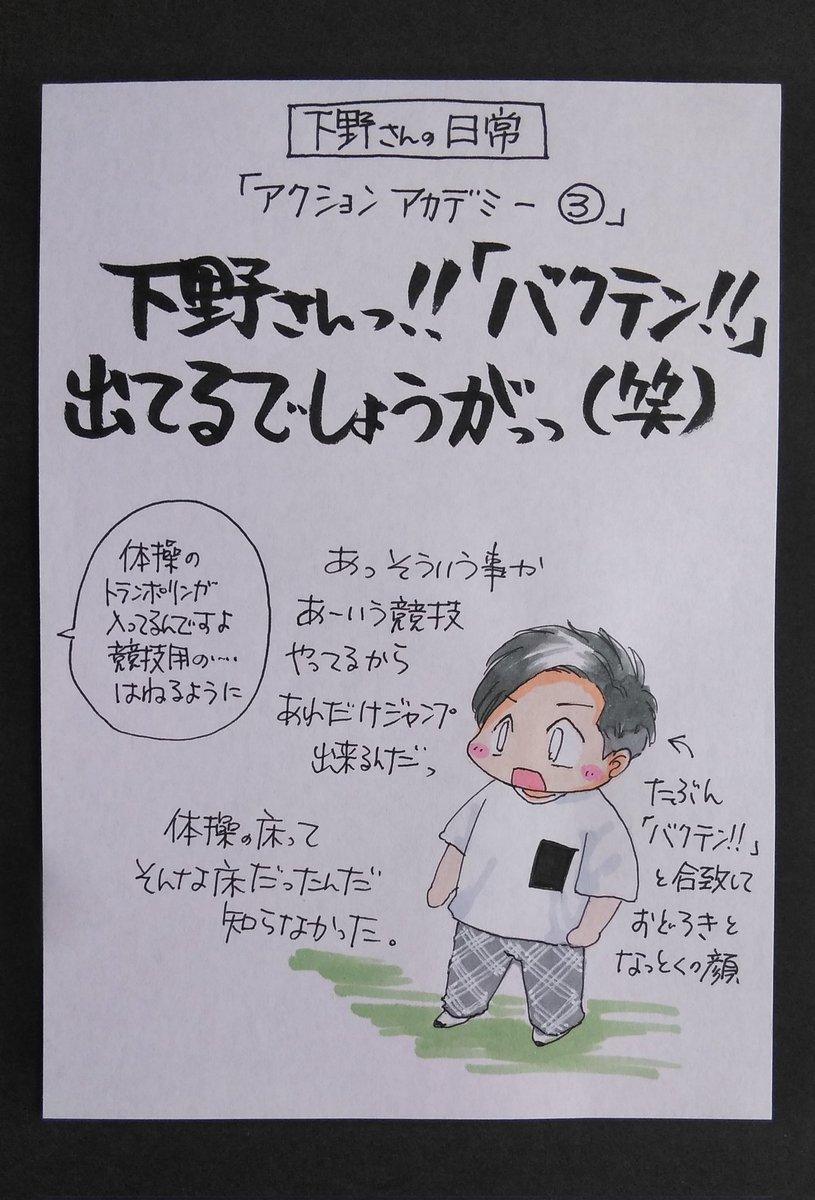 下野さんの日常
「アクションアカデミー③」
下野さんっ!!「バクテン!!」
出てるでしょうがっっ(笑)
体操の
トランポリンが
入ってるんですよ
競技用の…
はねるように
あっそういう事か
あーいう競技
やってるから
あれだけジャンプ
出来るんだっ
体操の床って
そんな床だったんだ
知らなかった。
←
たぶん
「バクテン!!」
と合致して
おどろきと
なっとくの顔